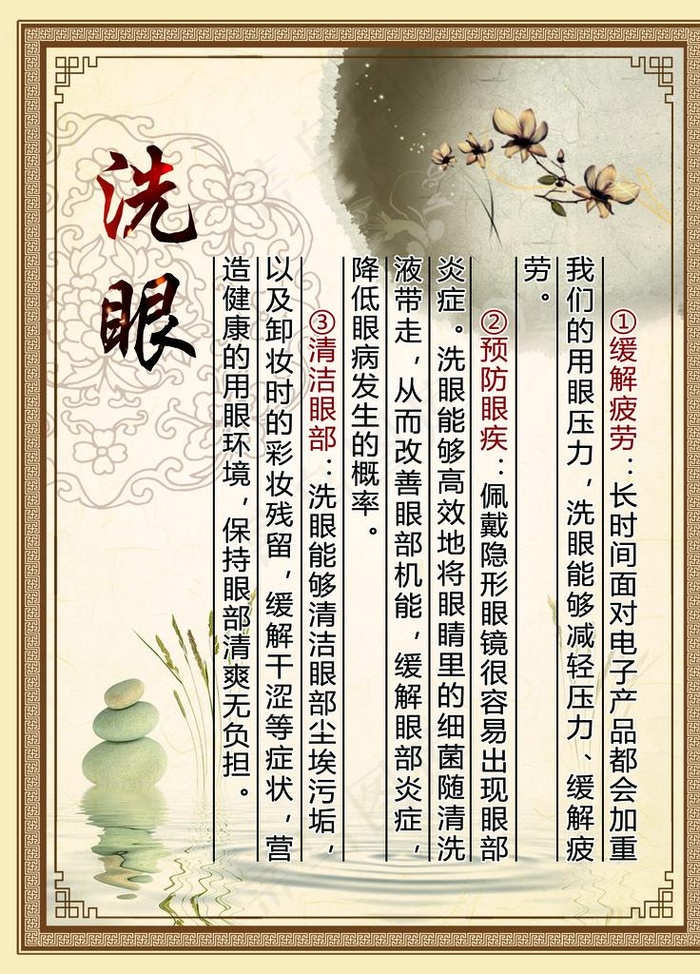 洗眼
①缓解疲劳：长时间面对电子产品都会加重
我们的用眼压力，洗眼能够减轻压力、缓解疲
劳。
②预防眼疾：佩戴隐形眼镜很容易出现眼部
炎症。洗眼能够高效地将眼睛里的细菌随清洗
液带走，从而改善眼部机能，缓解眼部炎症，
降低眼病发生的概率。
③清洁眼部：洗眼能够清洁眼部尘埃污垢，
以及卸妆时的彩妆残留，缓解干涩等症状，营
造健康的用眼环境，保持眼部清爽无负担。